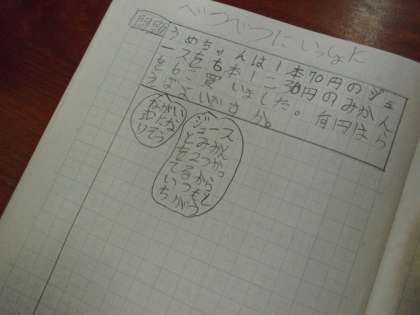 べつべつにいっしょに
問題
うめちゃんは1本70円のジュ
ースを5本、1こ30円のみかん
を5こ買いました。何円はら
うとよいですか。
ジュース
とみかん
を2つかっ
てるから
いつもと
ちがう
ながい
おはな
りそう